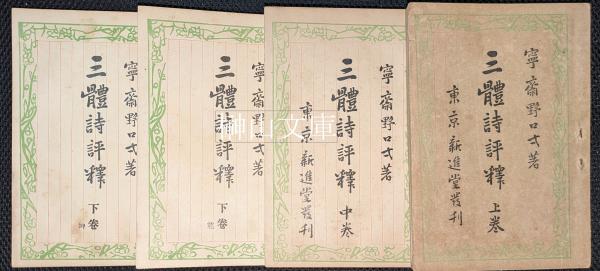 寧齋野口弌著
三體詩評釋 上巻
東京新進堂發刊
寧齋野口弌著
三體詩評釋 中巻
東京新進堂發刊
寧齋野口弌著
三體詩評釋 下卷
寧齋野口弌著
三體詩評釋 下卷
榊山文庫